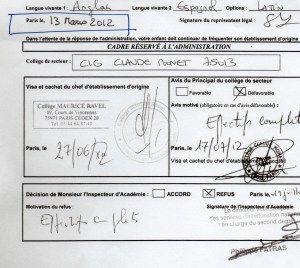 Langue vivante 1 : Anglais Langue vivante 2 : Espagnol Options : LATIN
Paris, le 13 Mars 2012 Signature du représentant légal :
Dans l'attente de la réponse de l'administration, votre enfant doit continuer de fréquenter son établissement d'origine.
CADRE RÉSERVÉ À L'ADMINISTRATION
Collège de secteur : CLG CLAUDE MONET 75013
Visa et cachet du chef d'établissement d'origine
Avis du Principal du collège de secteur
Favorable Défavorable
Avis motivé (obligatoire en cas d'avis défavorable) :
Effectifs complets
Collège MAURICE RAVEL
89, Cours de Vincennes
75971 PARIS CEDEX 20
Paris, le 27/06/12
Paris, le 17/07/12
Visa et cachet du chef d'établissement
Décision de Monsieur l'Inspecteur d'Académie : ACCORD REFUS Paris, le
Motivation du refus : Signature de l'Inspecteur d'Académie
Effectifs complets
Philippe FATRAS